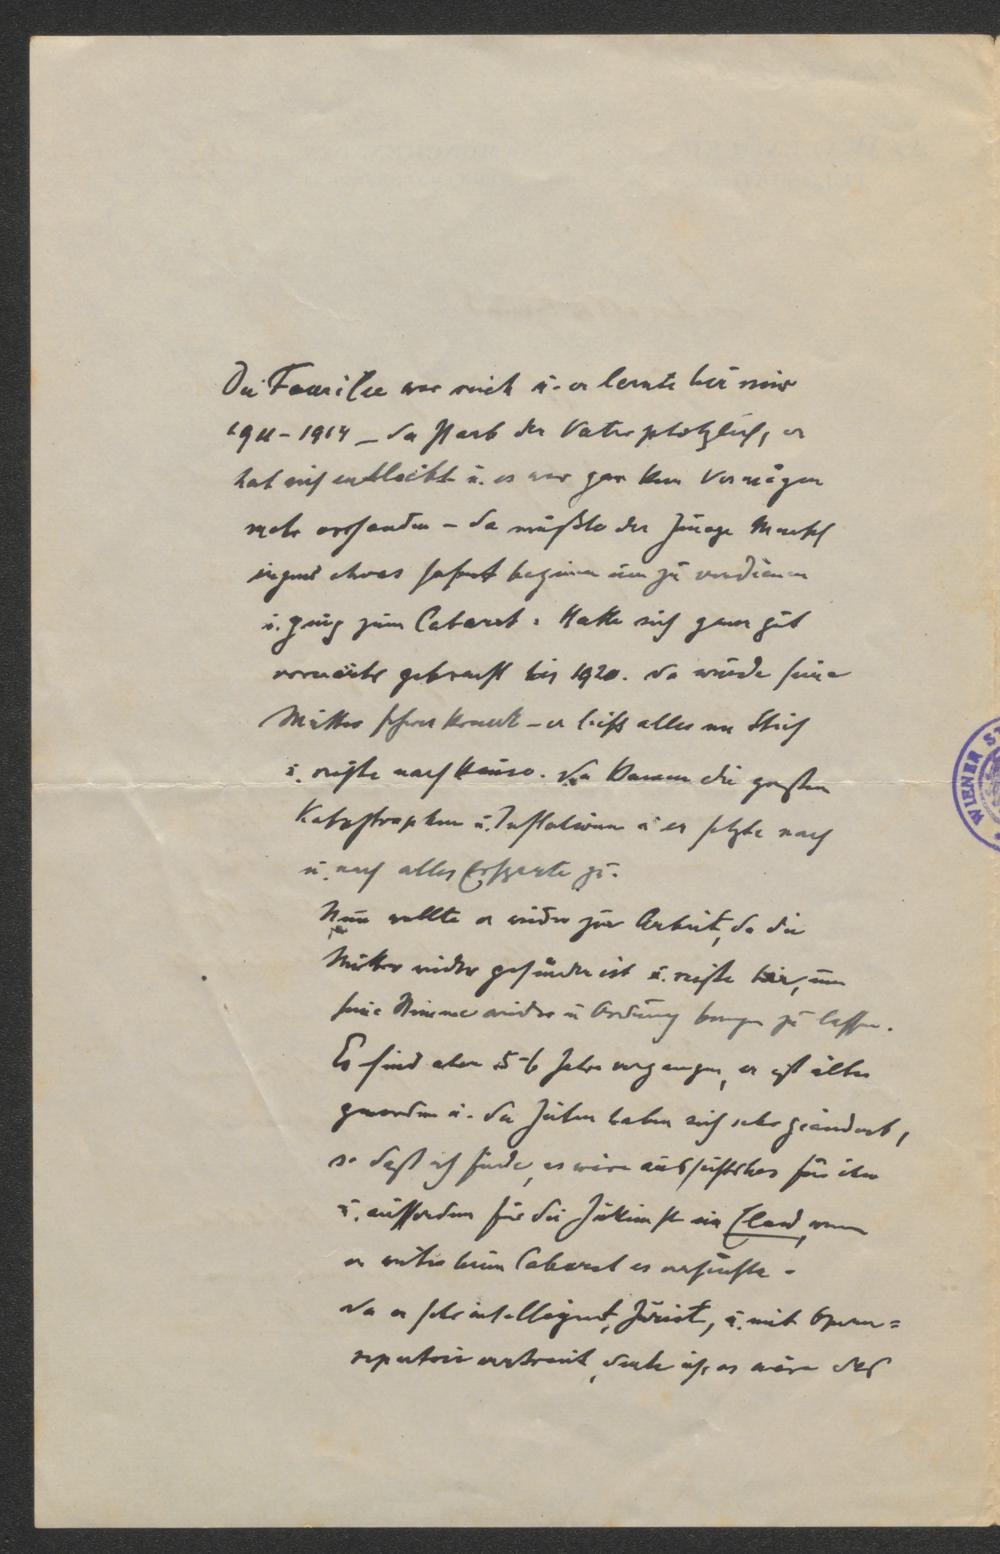 Die Familie war reich u. er lernte bei mir
1911-1914 – da starb der Vater plötzlich, er
hat sich entblockt u. es war gar kein Vermögen
mehr vorhanden – da mußte der junge Mensch
irgend etwas sofort beginnen um zu verdienen
u. ging zum Cabaret. Hatte sich ganz gut
vorwärts gebracht bis 1920. Da wurde seine
Mutter schwer krank – er ließ alles im Stich
u. reiste nach Hause. Da kamen die großen
Katastrophen u. Inflationen u er setzte nach
u. nach alles Ersparte zu.
Nun wollte er wieder zur Arbeit, da die
Mutter wieder gesundet ist u. reiste her, um
seine Stimme wieder in Ordnung bringen zu lassen.
Es sind aber 5-6 Jahre vergangen, er ist älter
geworden u. die Zeiten haben sich sehr geändert,
so daß ich finde, es wäre aussichtslos für ihn
u. außerdem für die Zukunft ein Elend, wenn
er weiter beim Cabaret es versuchte –
Da er sehr intelligent, Jurist, u. mit Opern=
repertoir vertraut, denke ich, es wäre das
WIENER ST